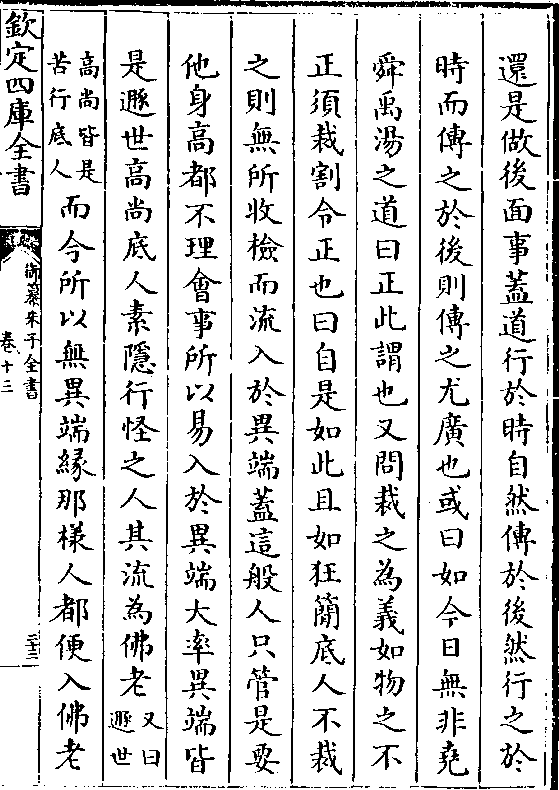 還是做後面事蓋道行於時自然傳於後然行之於
時而傳之於後則傳之尤廣也或曰如今日無非堯
舜禹湯之道曰正此謂也又問裁之為義如物之不
正須裁割令正也曰自是如此且如狂簡底人不裁
之則無所收檢而流入於異端蓋這般人只管是要
他身高都不理會事所以易入於異端大率異端皆
是遯世高尚底人素隱行怪之人其流為佛老又曰遯世
高尚皆是苦行底人而今所以無異端緣那樣人都便入佛老
欽定四庫全書
御纂朱子全書
卷十三
三十三